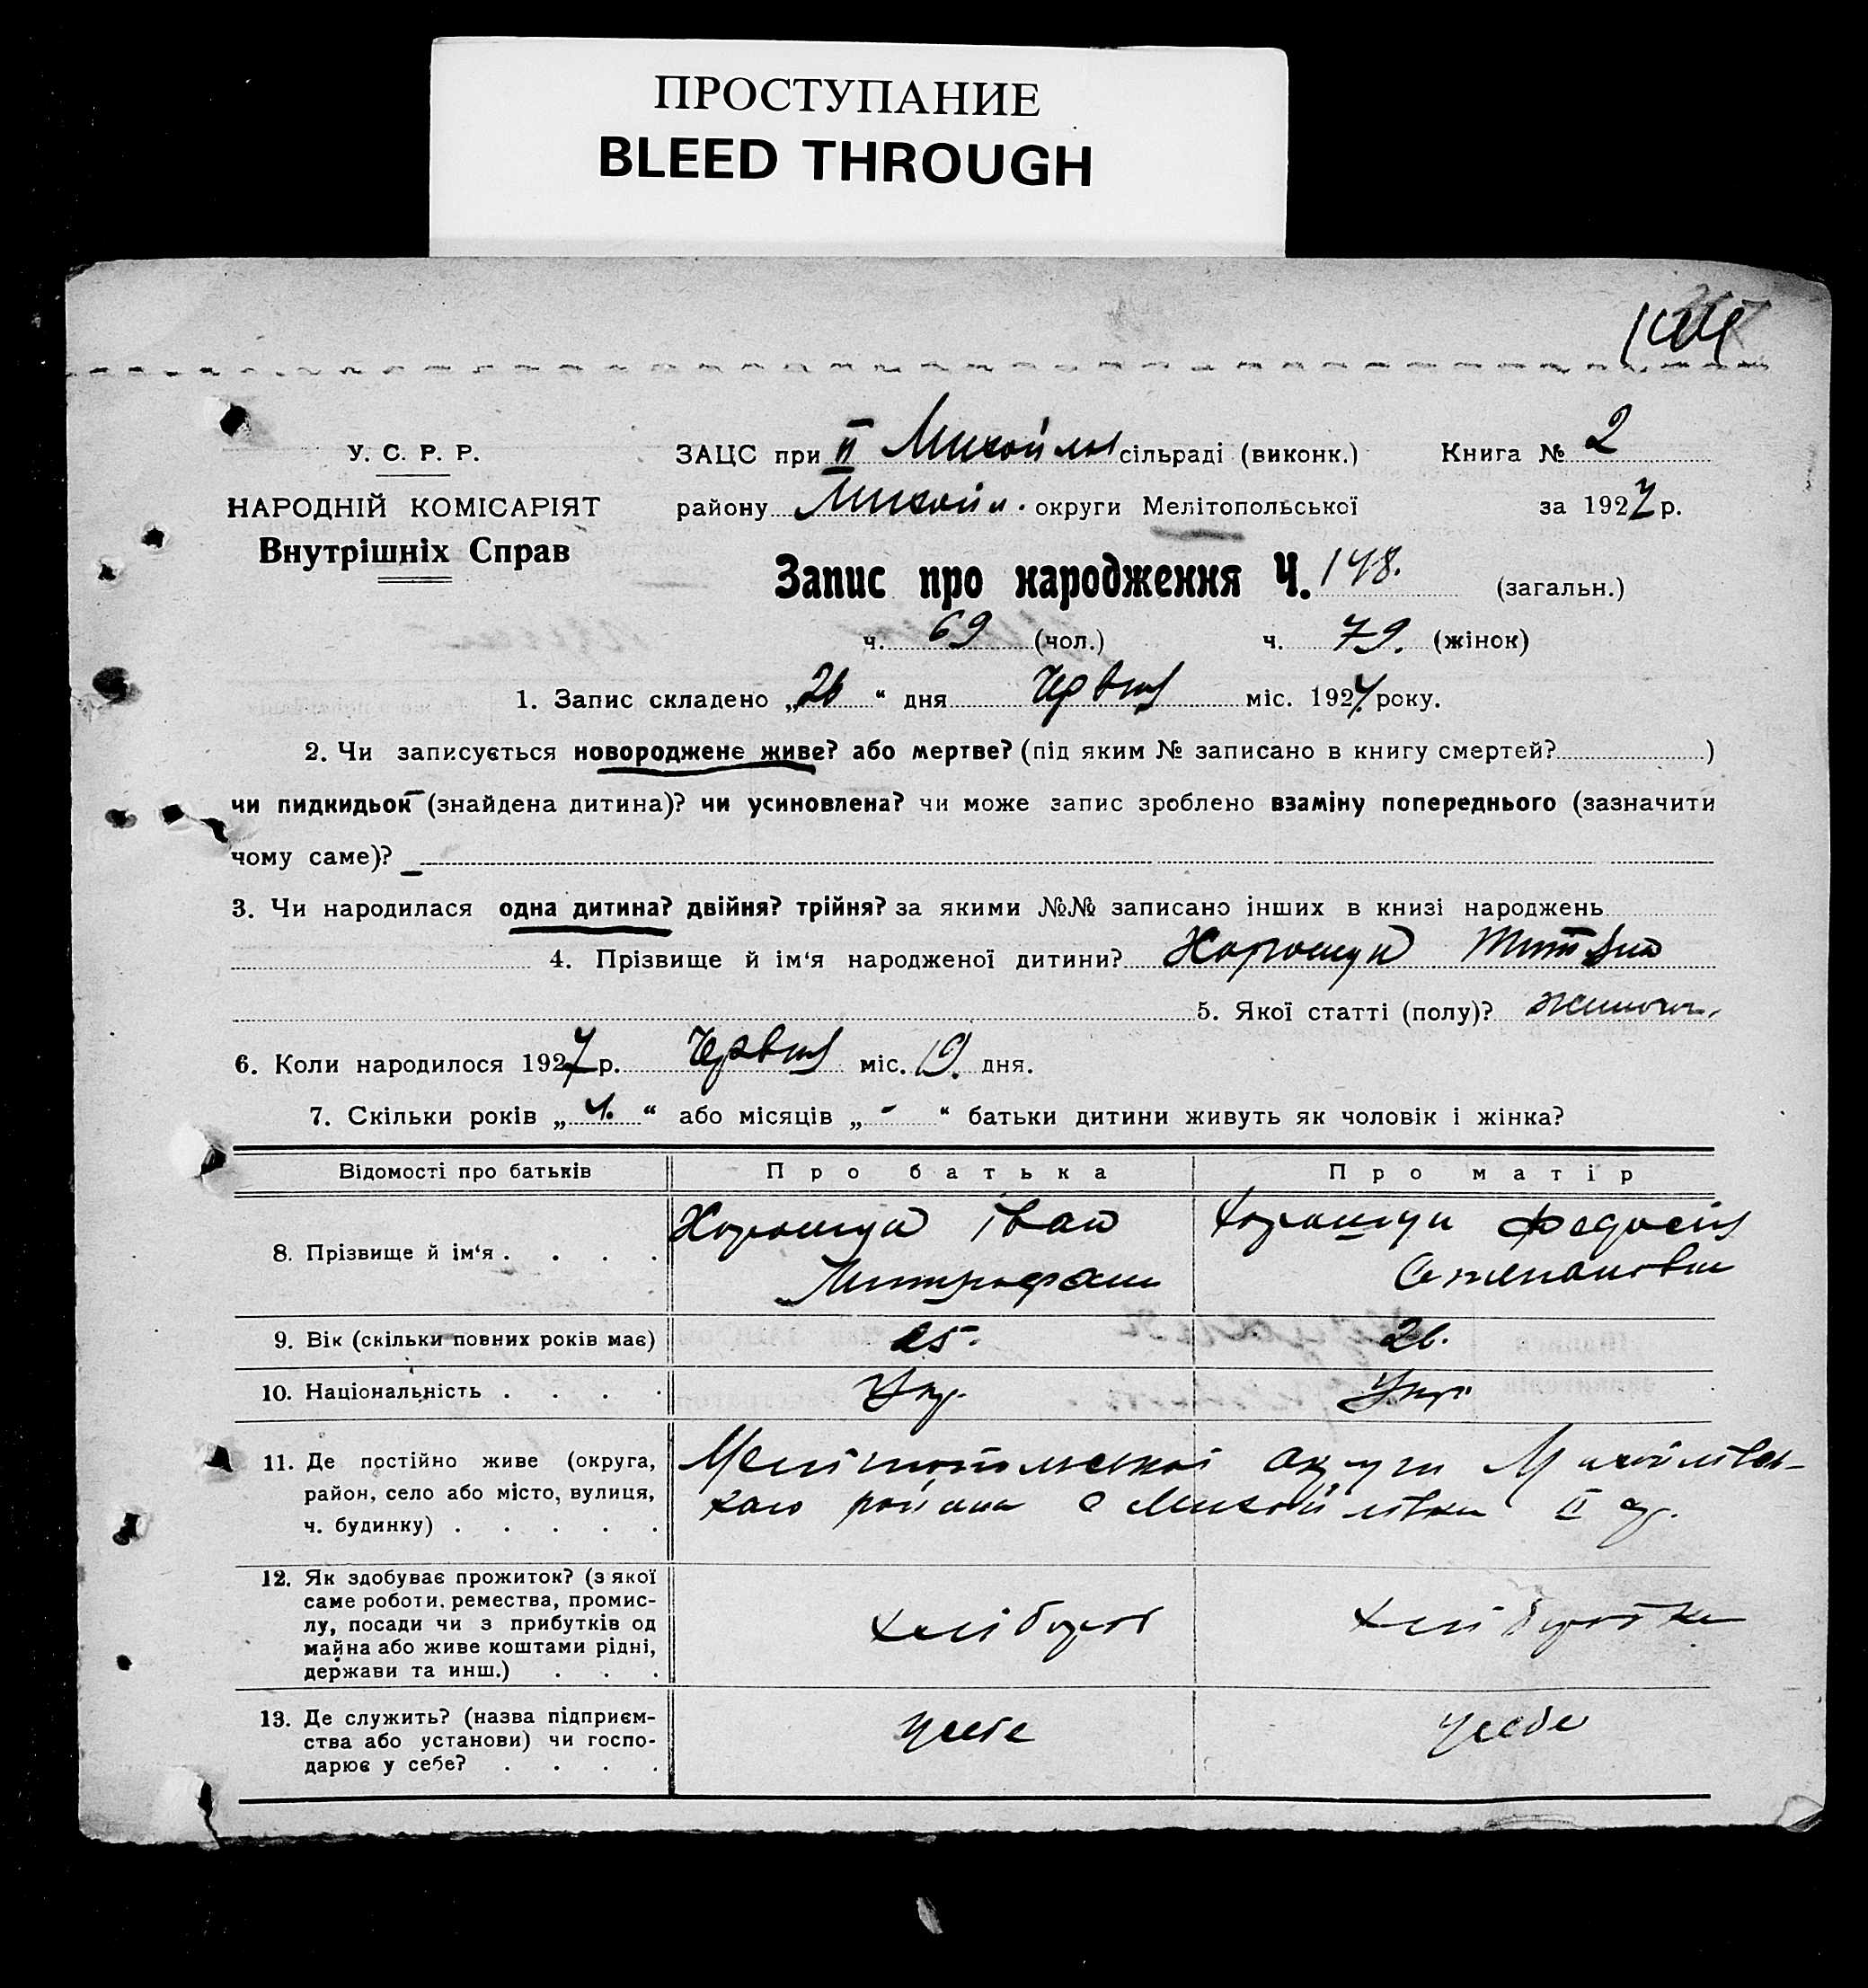 ПРОСТУПАНИЕ
BLEED THROUGH
У. С. Р. Р.
НАРОДНІЙ КОМІСАРІЯТ
Внутрішніх Справ
ЗАЦС при II Михайлів сільраді (виконк.) Книга № 2
району Михайл. округи Мелітопольської за 1927 р.
Запис про народження Ч. 148. (загальн.)
ч. 69 (чол.) ч. 79. (жінок)
1. Запис складено „26“ дня Червня міс. 1927 року.
2. Чи записується новороджене живе? або мертве? (під яким № записано в книгу смертей? )
чи пидкидьок (знайдена дитина)? чи усиновлена? чи може запис зроблено взаміну попереднього (зазначити
чому саме)? –
3. Чи народилася одна дитина? двійня? трійня? за якими №№ записано інших в книзі народжень
4. Прізвище й ім‘я народженої дитини?
5. Якої статті (полу)? жиноч.
6. Коли народилося 1927 р. Червня міс. 19. дня.
7. Скільки років „4.“ або місяців „-“ батьки дитини живуть як чоловік і жінка?
Відомості про батьків Про батька Про матір
8. Прізвище й ім‘я . . . . Іван Федосія
Митрофан Степановна
9. Вік (скільки повних років має) 25. 26.
10. Національність . . . . Укр. Укр.
11. Де постійно живе (округа, район, село або місто, вулиця, ч. будинку) . . . . . Мелітопольської округи Михайлівсь-
кого района с Михайлівки II
12. Як здобуває прожиток? (з якої
саме роботи, ремества, промис-
лу, посади чи з прибутків од
майна або живе коштами рідні,
держави та инш.) . . . хлібороб хліборобка
13. Де служить? (назва підприєм-
ства або установи) чи госпо-
дарює у себе? . . . . у себе у себе